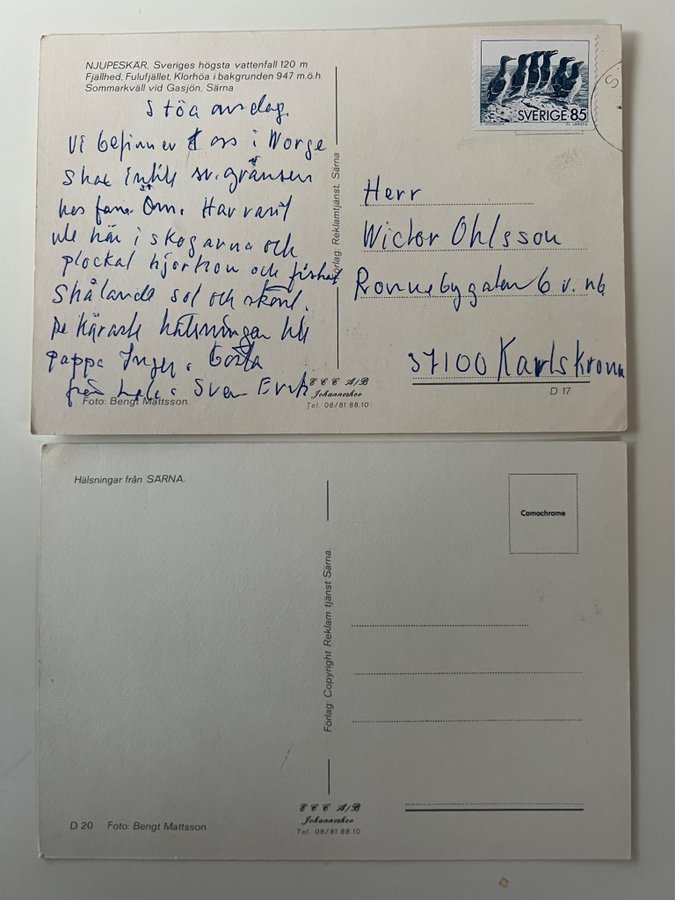 NJUPESKÄR. Sveriges högsta vattenfall 120 m
Fjällhed, Fulufjället, Klorhöa i bakgrunden 947 m.ö.h.
Sommarkväll vid Gasjön, Särna
Stöa onsdag.
Vi befinner oss i Norge
intill sv. gränsen
hos Har varit
ute här i skogarna och
plockat hjortron och fiskat
Strålande sol och skönt.
De käraste hälsningar till
pappa Inger, Gösta
från Sven Erik
Foto: Bengt Mattsson.
Förlag: Reklamtjänst. Särna
E C C A/B
Johanneshov
Tel. 08/81 88.10
SVERIGE 85
Herr
Victor Ohlsson
Ronnebygatan 6 v. nb
37100 Karlskrona
D 17
Hälsningar från SÄRNA.
Förlag: Copyright Reklam tjänst Särna.
Comochrome
D 20 Foto: Bengt Mattsson
E C C A/B
Johanneshov
Tel. 08/81 88.10